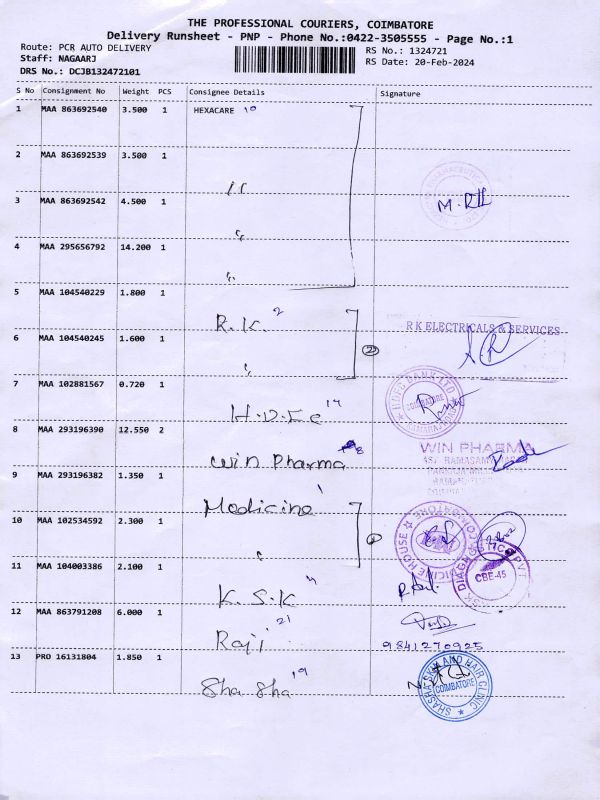 THE PROFESSIONAL COURIERS, COIMBATORE
Delivery Runsheet - PNP - Phone No.:0422-3505555 - Page No.:1
Route: PCR AUTO DELIVERY
RS No.: 1324721
Staff: NAGAARJ
RS Date: 20-Feb-2024
DRS No.: DCJB132472101
S No Consignment No Weight PCS Consignee Details Signature
1 MAA 863692540 3.500 1 HEXACARE 10
2 MAA 863692539 3.500 1
3 MAA 863692542 4.500 1
M.
4 MAA 295656792 14.200 1
5 MAA 104540229 1.800 1
R.K. 2
RK ELECTRICALS & SERVICES
6 MAA 104540245 1.600 1
2
7 MAA 102881567 0.720 1
H.D.F.C 14
HDFC BANK LTD
COIMBATORE
8 MAA 293196390 12.550 2
Win Pharma 8
WIN PHARMA
9 MAA 293196382 1.350 1
Medicine 1
10 MAA 102534592 2.300 1
MEDICINE HOUSE
COIMBATORE
11 MAA 104003386 2.100 1
CBE-45
K.S.K 4
12 MAA 863791208 6.000 1
Raji 21
9841270925
13 PRO 16131804 1.850 1
Sha Sha 19
SHASHA SKIN AND HAIR CLINIC
COIMBATORE